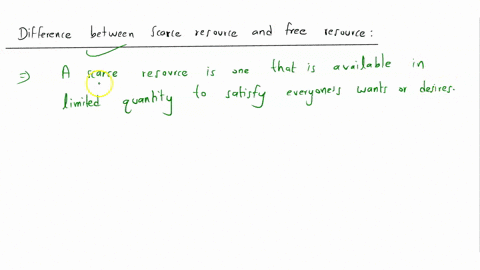 Difference between scarce resource and free resource:
⇒ A scarse resource is one that is available in
limited quantity to satisfy everyone's wants or desires.